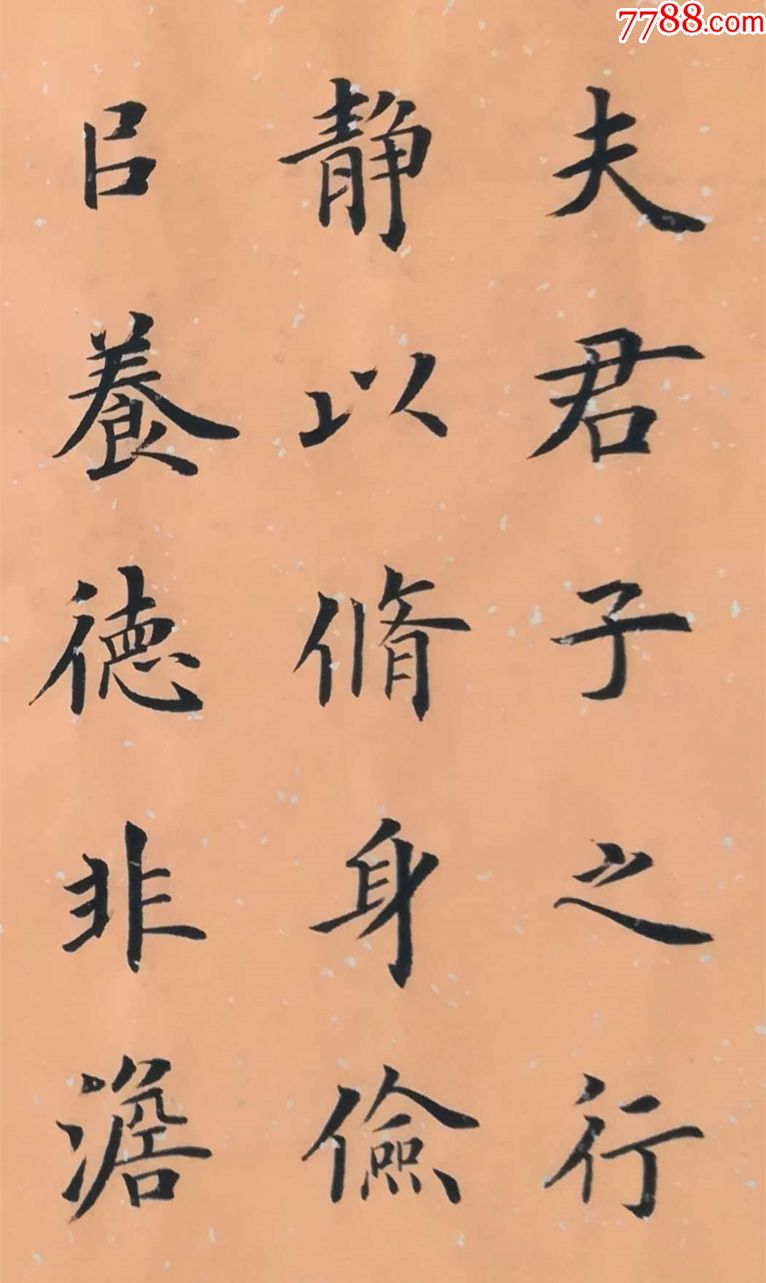 7788.com
夫君子之行
静以脩身儉
㠯養徳非澹